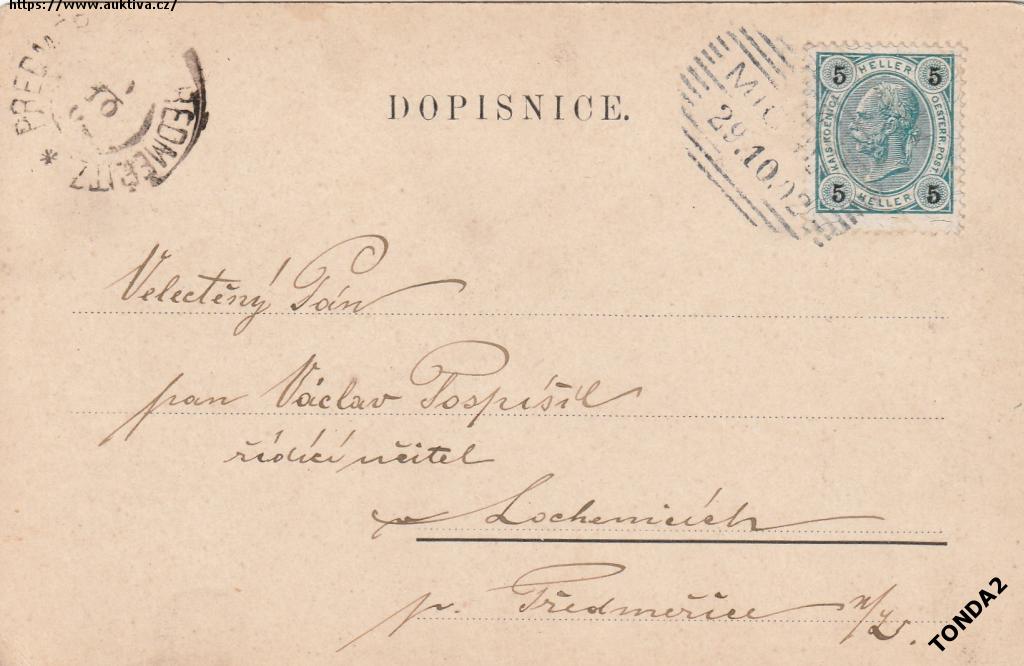 https://www.auktiva.cz/
DOPISNICE.
29.10.02
5 HELLER 5
KAIS. KOENIGL. OESTERR. POST
5 HELLER 5
Velectěný Pán
pan Václav Pospíšil
řídící učitel
v Lochenicích
p. Předměřice n/L.
TONDA2